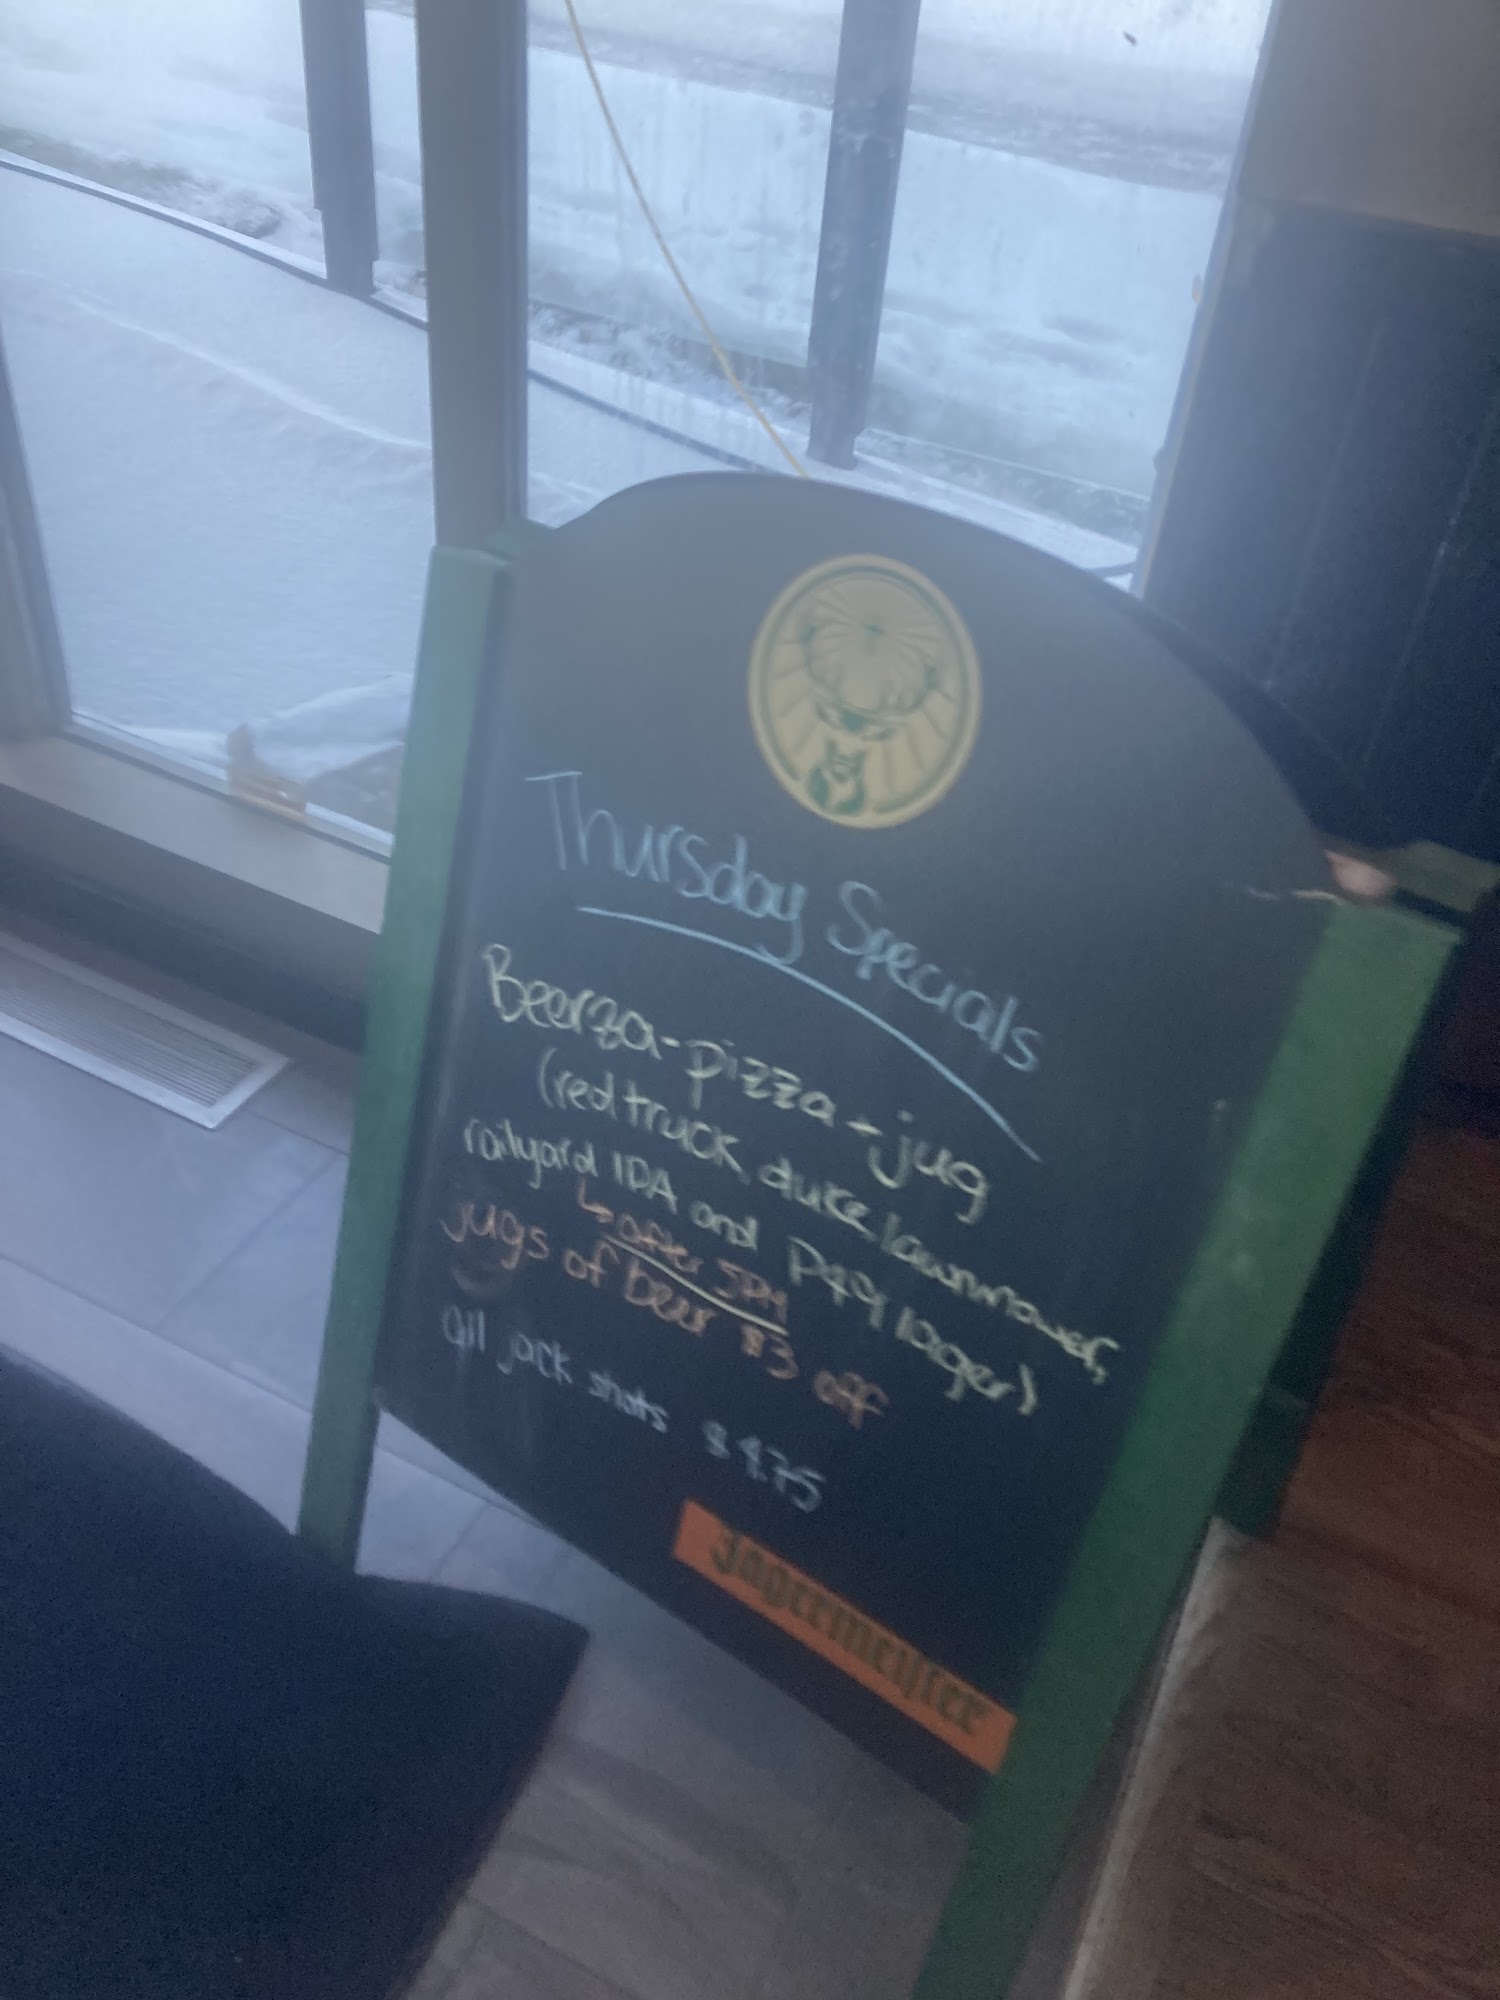 Thursday Specials
Beerza - pizza + jug
(red truck, duke, lawnmower,
railyard IDA and P49 lager)
↳ after 5PM
jugs of beer $3 off
all jack shots $4.75
Jägermeister